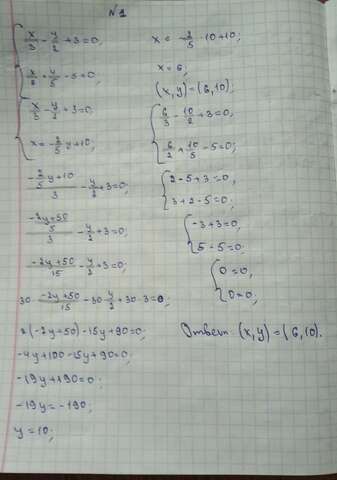 №1
x/3 - y/2 + 3 = 0;
x/2 + y/5 - 5 = 0;
x/3 - y/2 + 3 = 0;
x = -2/5 y + 10;
(-2/5 y + 10)/3 - y/2 + 3 = 0;
((-2y + 50)/5)/3 - y/2 + 3 = 0;
(-2y + 50)/15 - y/2 + 3 = 0;
30 · (-2y + 50)/15 - 30 · y/2 + 30 · 3 = 0;
2(-2y + 50) - 15y + 90 = 0;
-4y + 100 - 15y + 90 = 0;
-19y + 190 = 0;
-19y = -190;
y = 10;
x = -2/5 · 10 + 10;
x = 6;
(x, y) = (6, 10);
6/3 - 10/2 + 3 = 0;
6/2 + 10/5 - 5 = 0;
2 - 5 + 3 = 0,
3 + 2 - 5 = 0;
-3 + 3 = 0;
5 - 5 = 0;
0 = 0,
0 = 0;
Ответ: (x, y) = (6, 10).